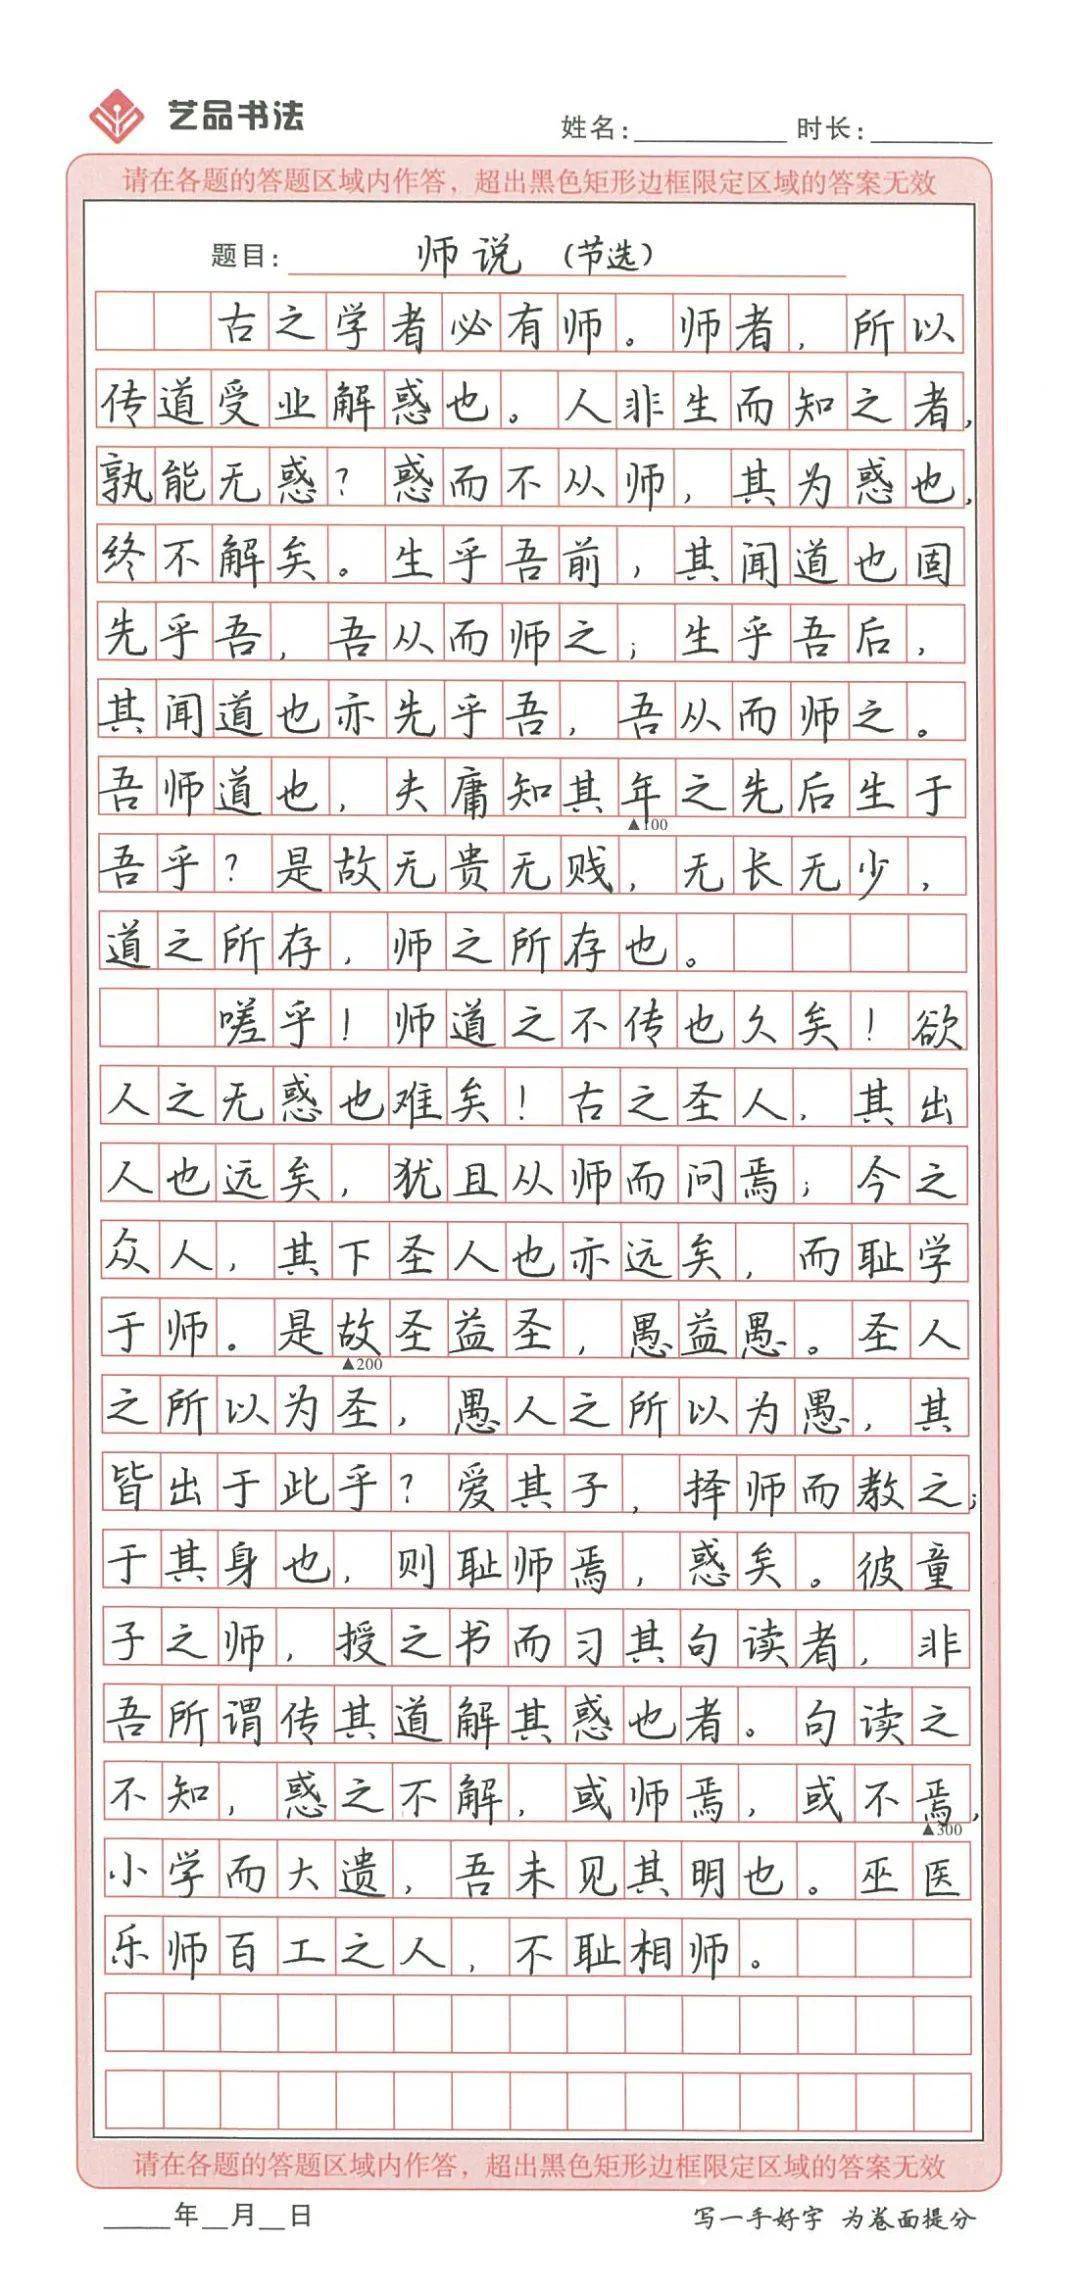 艺品书法
姓名:
时长:
请在各题的答题区域内作答，超出黑色矩形边框限定区域的答案无效
题目: 师说（节选）
古之学者必有师。师者，所以
传道受业解惑也。人非生而知之者，
孰能无惑？惑而不从师，其为惑也，
终不解矣。生乎吾前，其闻道也固
先乎吾，吾从而师之；生乎吾后，
其闻道也亦先乎吾，吾从而师之。
吾师道也，夫庸知其年之先后生于
▲100
吾乎？是故无贵无贱，无长无少，
道之所存，师之所存也。
嗟乎！师道之不传也久矣！欲
人之无惑也难矣！古之圣人，其出
人也远矣，犹且从师而问焉；今之
众人，其下圣人也亦远矣，而耻学
于师。是故圣益圣，愚益愚。圣人
▲200
之所以为圣，愚人之所以为愚，其
皆出于此乎？爱其子，择师而教之；
于其身也，则耻师焉，惑矣。彼童
子之师，授之书而习其句读者，非
吾所谓传其道解其惑也者。句读之
不知，惑之不解，或师焉，或不焉，
▲300
小学而大遗，吾未见其明也。巫医
乐师百工之人，不耻相师。
请在各题的答题区域内作答，超出黑色矩形边框限定区域的答案无效
年 月 日
写一手好字 为卷面提分